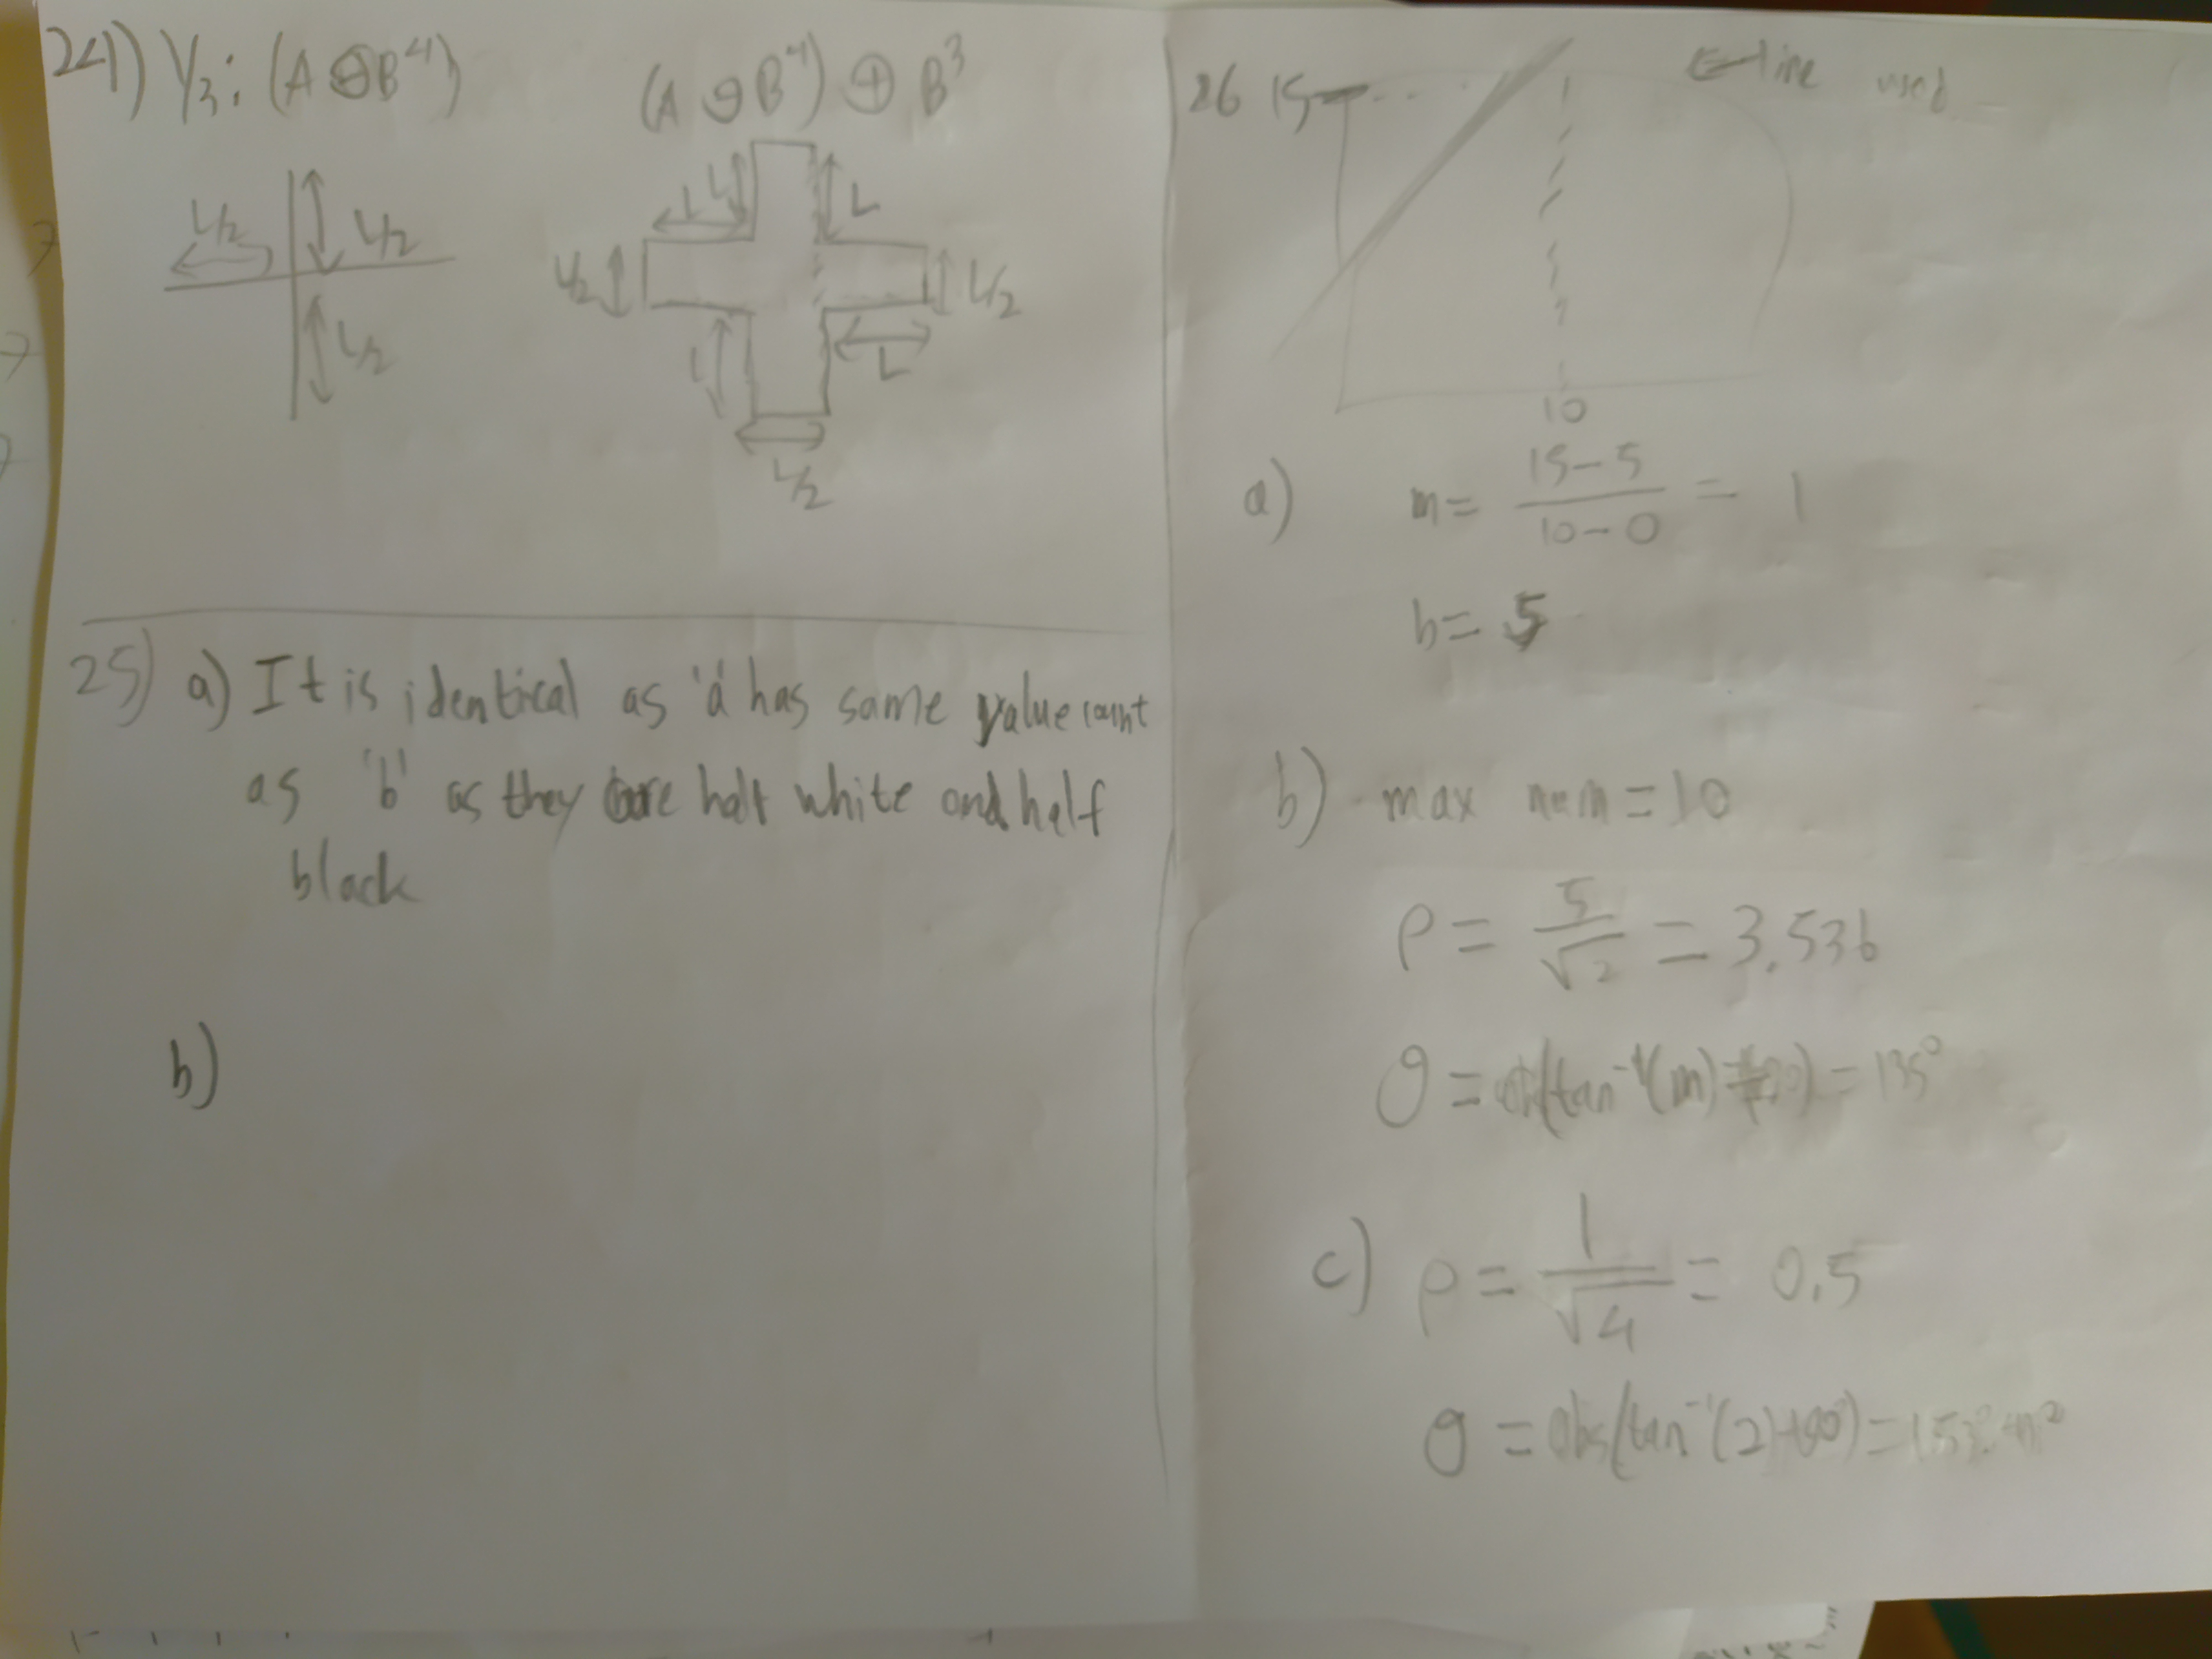 24) Y₃: (A ⊖ B⁴)
(A ⊖ B⁴) ⊕ B³
L/2
L/2
L/2
L
L
L
L/2
L/2
L
L
L/2
25) a) It is identical as 'a' has same value count
as 'b' as they are half white and half
black
b)
26
15
←line used
10
a) m = (15-5)/(10-0) = 1
b = 5
b) max num = 10
ρ = 5/√2 = 3.536
θ = (tan⁻¹(m) = 135°
c) ρ = 1/√4 = 0.5
θ = abs(tan⁻¹(2)+90°) =